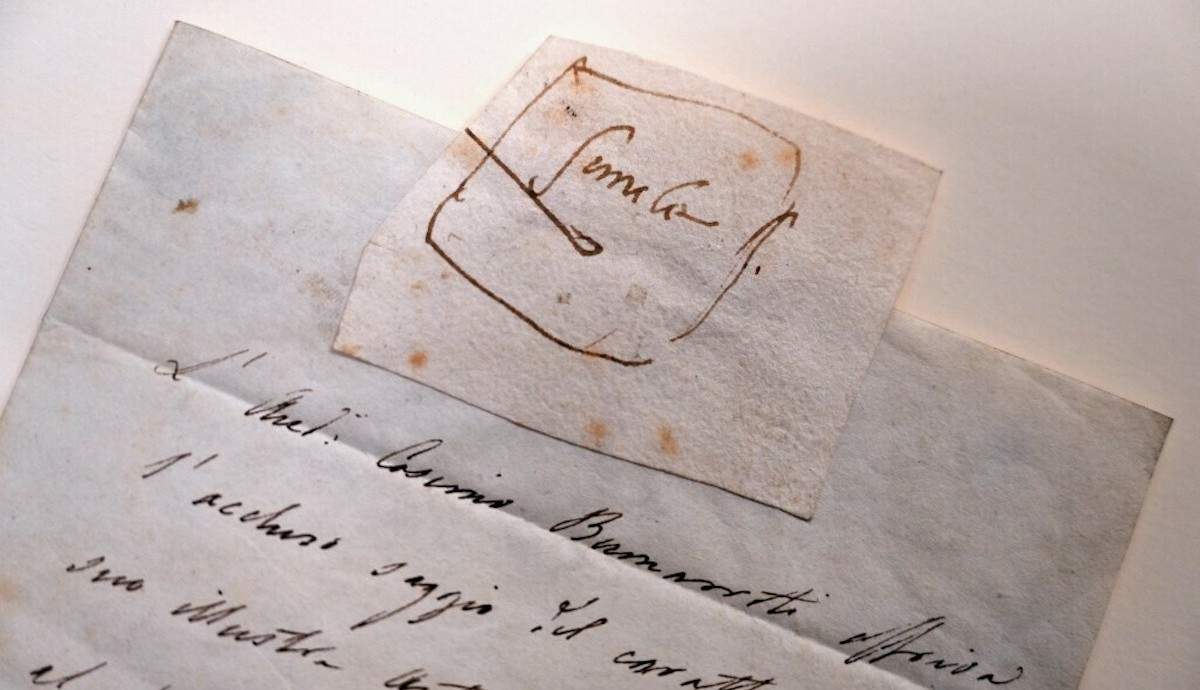 Simula
L' Avv.t Cosimo Buonarroti offriva
l' accluso saggio del caratt
suo illustre ant
al